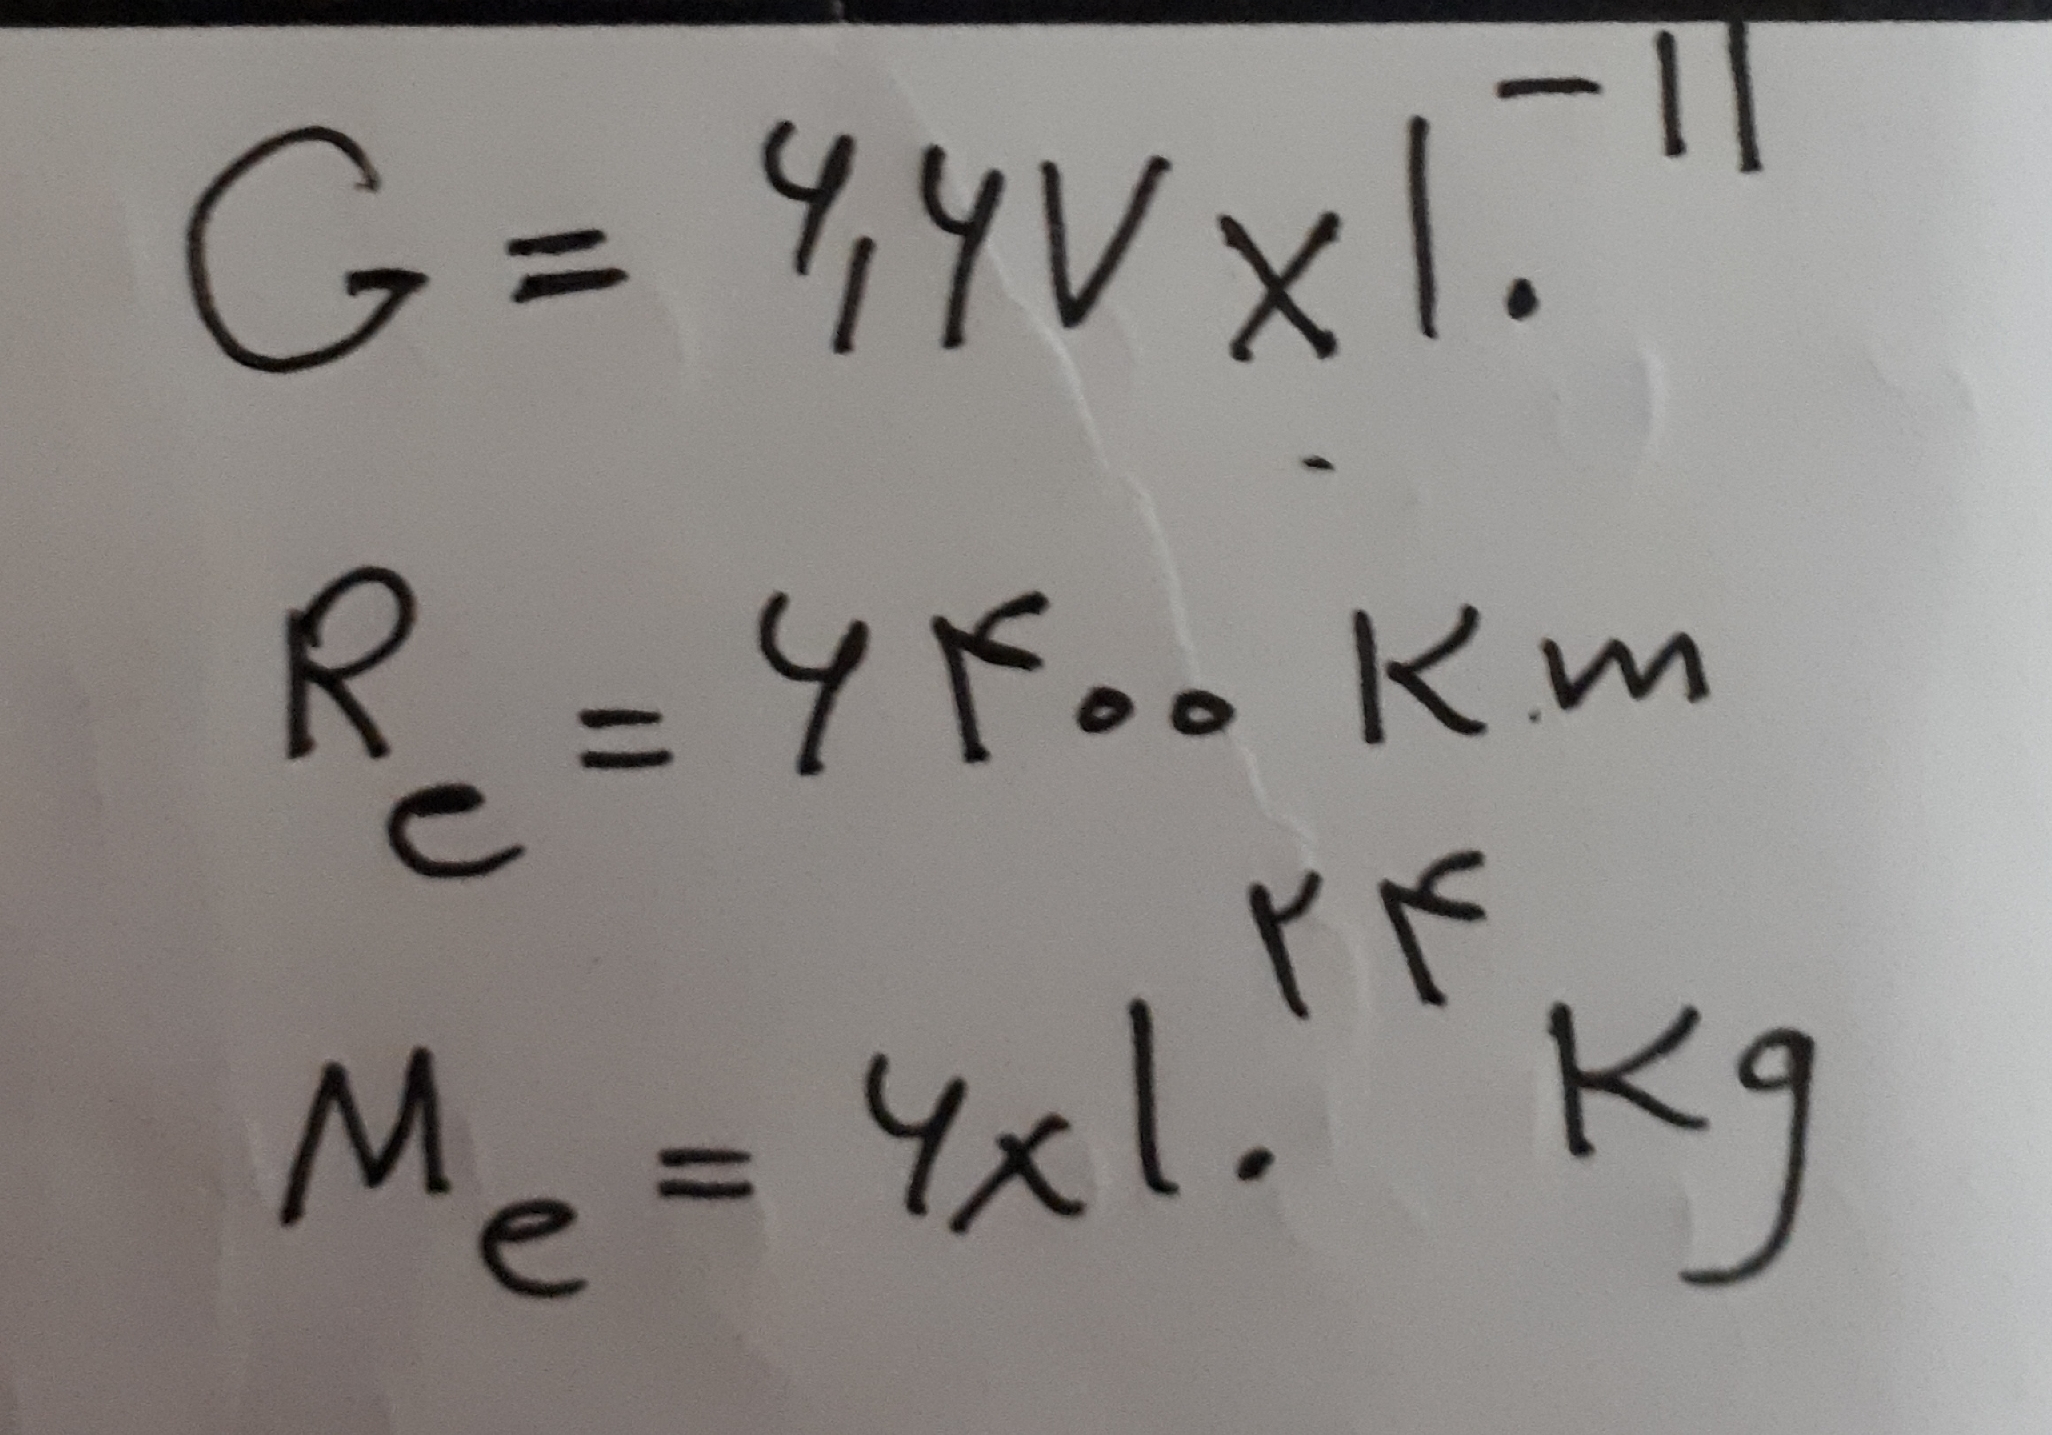 G = ۶,۶۷ × ۱۰⁻¹¹
Rₑ = ۶۴۰۰ K.m
Mₑ = ۶×۱۰²⁴ Kg